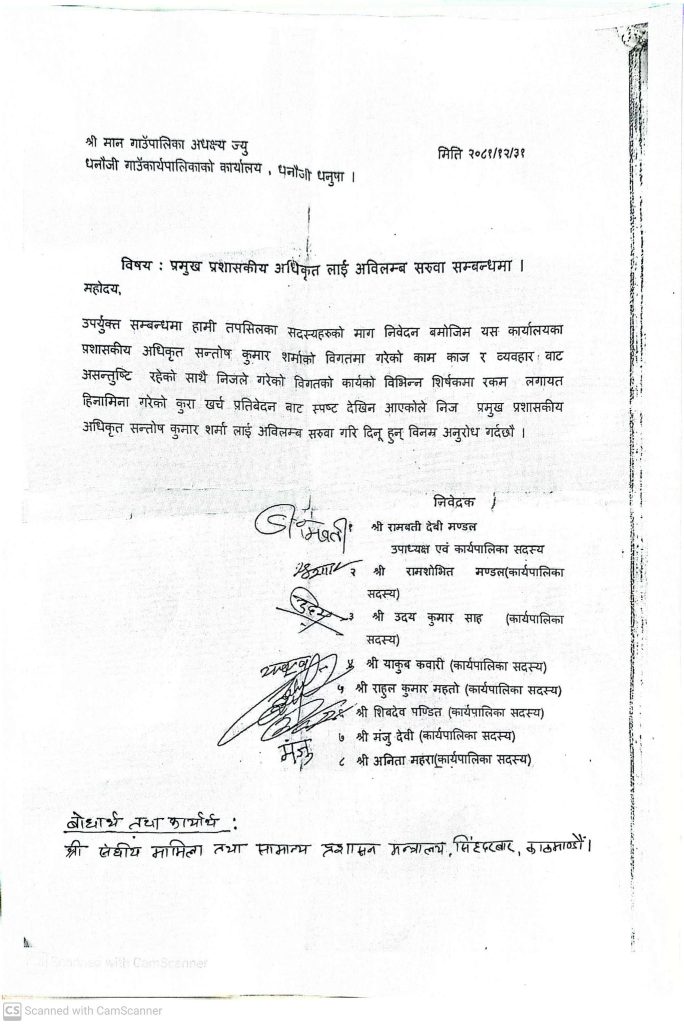 श्री मान गाउँपालिका अधक्ष्य ज्यु
मिति २०८१/१२/३१
धनौजी गाउँकार्यपालिकाको कार्यालय , धनौजी धनुषा ।
विषय : प्रमुख प्रशासकीय अधिकृत लाई अविलम्ब सरुवा सम्बन्धमा ।
महोदय,
उपर्युक्त सम्बन्धमा हामी तपसिलका सदस्यहरुको माग निवेदन बमोजिम यस कार्यालयका
प्रशासकीय अधिकृत सन्तोष कुमार शर्माको विगतमा गरेको काम काज र व्यवहार बाट
असन्तुष्टि रहेको साथै निजले गरेको विगतको कार्यको विभिन्न शिर्षकमा रकम लगायत
हिनामिना गरेको कुरा खर्च प्रतिबेदन बाट स्पष्ट देखिन आएकोले निज प्रमुख प्रशासकीय
अधिकृत सन्तोष कुमार शर्मा लाई अविलम्ब सरुवा गरि दिनू हुन् विनम्र अनुरोध गर्दछौ ।
निवेद्रक
१ श्री रामबती देवी मण्डल
उपाध्यक्ष एवं कार्यपालिका सदस्य
२ श्री रामशोभित मण्डल(कार्यपालिका
सदस्य)
उदय ३ श्री उदय कुमार साह (कार्यपालिका
सदस्य)
४ श्री याकुब कवारी (कार्यपालिका सदस्य)
५ श्री राहुल कुमार महतो (कार्यपालिका सदस्य)
६ श्री शिबदेव पण्डित (कार्यपालिका सदस्य)
७ श्री मंजु देवी (कार्यपालिका सदस्य)
मंजु ८ श्री अनिता महरा(कार्यपालिका सदस्य)
बोधार्थ तथा कार्यार्थ :
श्री संघीय मामिला तथा सामान्य प्रशासन मन्त्रालय, सिंहदरबार, काठमाण्डौं।
Scanned with CamScanner
CS Scanned with CamScanner